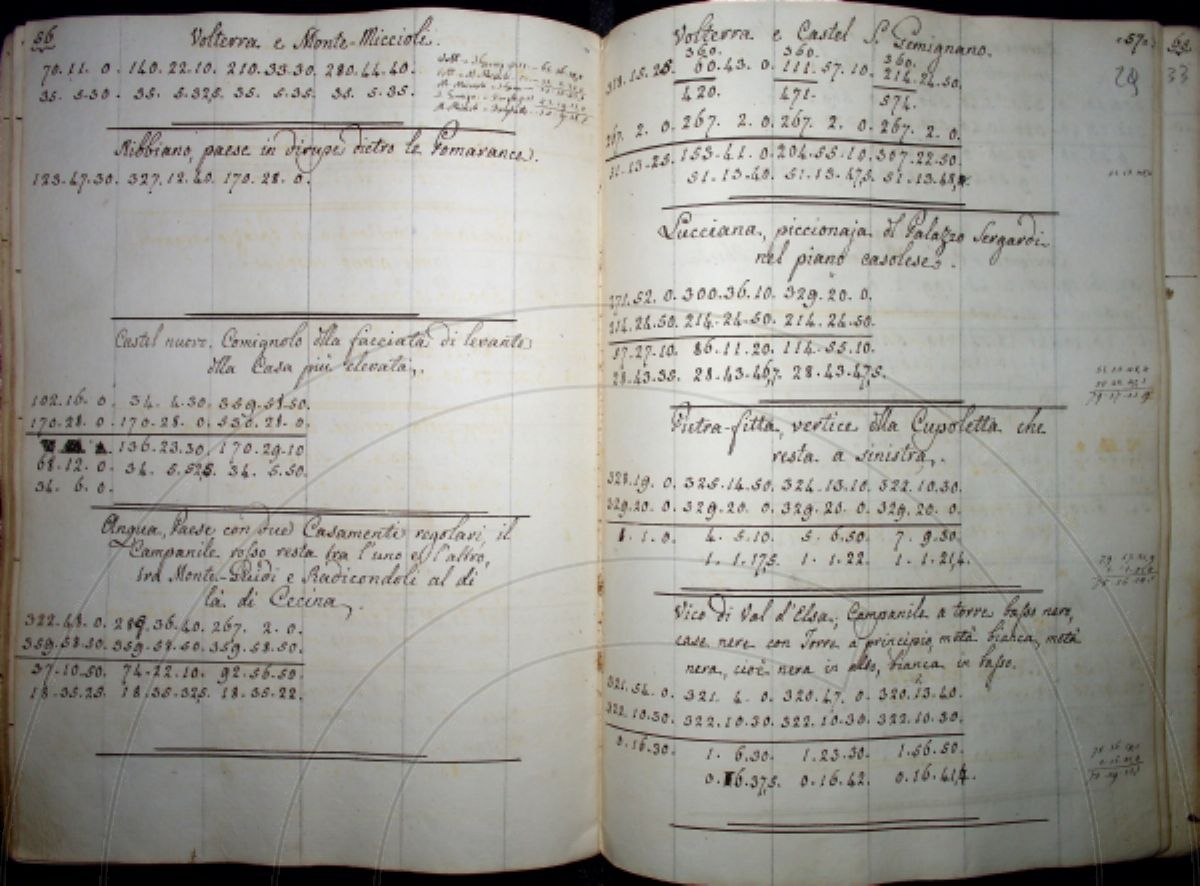 56
Volterra e Monte-Miccioli.
70. 11. 0. 140. 22. 10. 210. 33. 30. 280. 44. 40.
35. 5. 30. 35. 5. 32,5. 35. 5. 35. 35. 5. 35.
Ribbiano, paese in dirupo dietro le Pomarance.
123. 47. 30. 327. 12. 40. 170. 28. 0.
Castel nuovo, Comignolo della facciata di levante
della Casa più elevata.
102. 16. 0. 34. 4. 30. 359. 58. 50.
170. 28. 0. 170. 28. 0. 530. 28. 0.
136. 23. 30. 170. 29. 10
68. 12. 0. 34. 5. 52,5. 34. 5. 50.
34. 6. 0.
Anqua, Paese con due Casamenti regolari, il
Campanile rosso resta tra l'uno e l'altro,
tra Monte-Guidi e Radicondoli al di
là di Cecina.
322. 48. 0. 285. 36. 40. 267. 2. 0.
359. 58. 50. 359. 58. 50. 359. 58. 50.
37. 10. 50. 74. 22. 10. 92. 56. 50.
18. 35. 25. 18. 35. 32,5. 18. 35. 22.
Volterra e Castel S. Gemignano.
57
29
360. 360. 360.
318. 15. 25. 60. 43. 0. 111. 57. 10. 214. 24. 50.
420. 471. 574.
267. 2. 0. 267. 2. 0. 267. 2. 0. 267. 2. 0.
51. 13. 25. 153. 41. 0. 204. 55. 10. 307. 22. 50.
51. 13. 40. 51. 13. 47,5. 51. 13. 48,
Lucciana, piccionaja del Palazzo Sergardi
nel piano casolese.
271. 52. 0. 300. 36. 10. 329. 20. 0.
214. 24. 50. 214. 24. 50. 214. 24. 50.
57. 27. 10. 86. 11. 20. 114. 55. 10.
28. 43. 35. 28. 43. 46,7. 28. 43. 47,5.
Pietra-fitta, vertice della Cupoletta che
resta a sinistra.
328. 19. 0. 325. 14. 50. 324. 13. 10. 322. 10. 30.
329. 20. 0. 329. 20. 0. 329. 20. 0. 329. 20. 0.
1. 1. 0. 4. 5. 10. 5. 6. 50. 7. 9. 30.
1. 1. 17,5. 1. 1. 22. 1. 1. 21,4.
Vico di Val d'Elsa, Campanile a torre basso nero,
case nere con Torre a principio, metà bianca, metà
nera, cioè nera in alto, bianca in basso.
321. 54. 0. 321. 4. 0. 320. 47. 0. 320. 13. 40.
322. 10. 30. 322. 10. 30. 322. 10. 30. 322. 10. 30.
0. 16. 30. 1. 6. 30. 1. 23. 30. 1. 56. 50.
0. 16. 37,5. 0. 16. 42. 0. 16. 41,4.
33